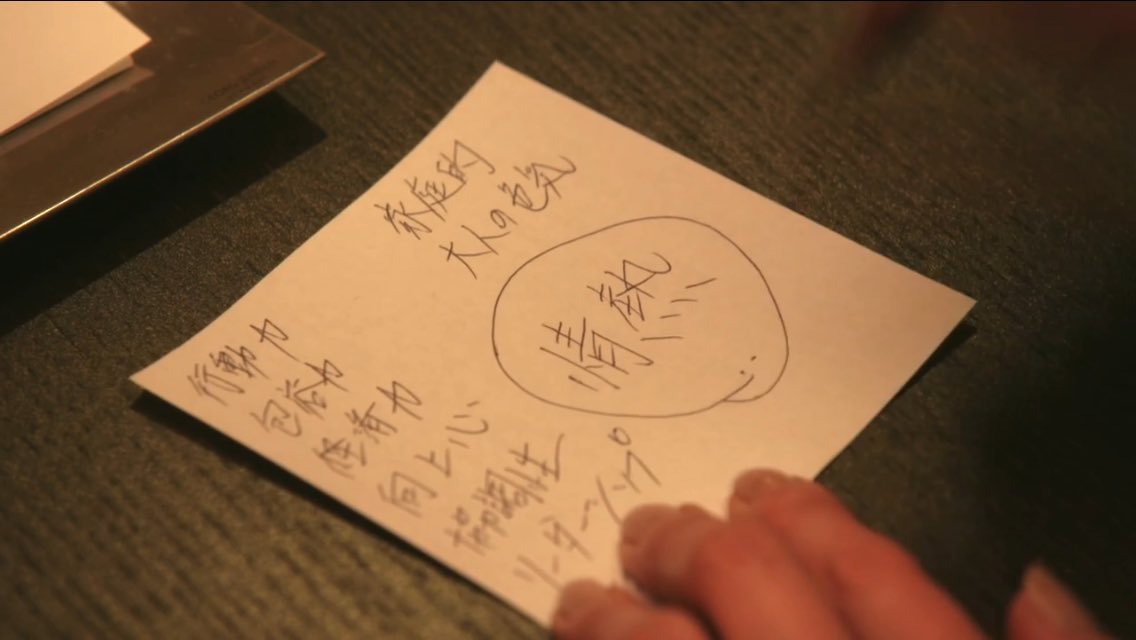 家庭的
大人の色気
情熱
行動力
包容力
経済力
向上心
協調性
リーダーシップ